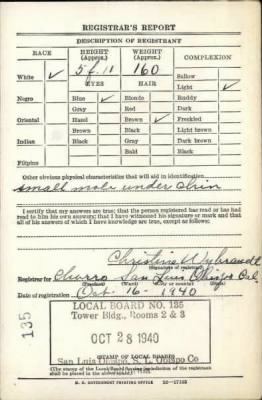 REGISTRAR'S REPORT
DESCRIPTION OF REGISTRANT
RACE HEIGHT (Approx.) WEIGHT (Approx.) COMPLEXION
White ✓ 5 f. 11 160 Sallow
EYES HAIR Light ✓
Negro Blue ✓ Blonde Ruddy
Gray Red Dark
Oriental Hazel Brown ✓ Freckled
Brown Black Light brown
Indian Black Gray Dark brown
Bald Black
Filipino
Other obvious physical characteristics that will aid in identification
small mole under chin
I certify that my answers are true; that the person registered has read or has had
read to him his own answers; that I have witnessed his signature or mark and that
all of his answers of which I have knowledge are true, except as follows:
Christine Wybrandt
(Signature of registrar)
Registrar for Chorro San Luis Obispo Cal.
(Precinct) (Ward) (City or county) (State)
Date of registration Oct. 16 - 1940
LOCAL BOARD NO. 135
Tower Bldg., Rooms 2 & 3
OCT 28 1940
(STAMP OF LOCAL BOARD)
San Luis Obispo, S. L. Obispo Co
(The stamp of the Local Board having jurisdiction of the registrant
shall be placed in the above space.)
U. S. GOVERNMENT PRINTING OFFICE 16-17105
135